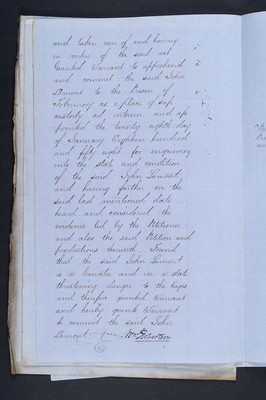 and taken care of and having
in virtue of the said act
Granted Warrant to apprehend
and commit the said John
Lamont to the Prison of
Tobermory as a place of safe
custody ad interim and ap
pointed the twenty eighth day
of January Eighteen hundred
and fifty eight for enquiring
into the state and condition
of the said John Lamont,
and having further on the
said last mentioned date
heard and considered the
evidence led by the Petitioner
and also the said Petition and
productions therewith Found
that the said John Lamont
is a lunatic and in a state
threatening danger to the lieges
and therefore granted Warrant
and hereby grants Warrant
to commit the said John
Lamont